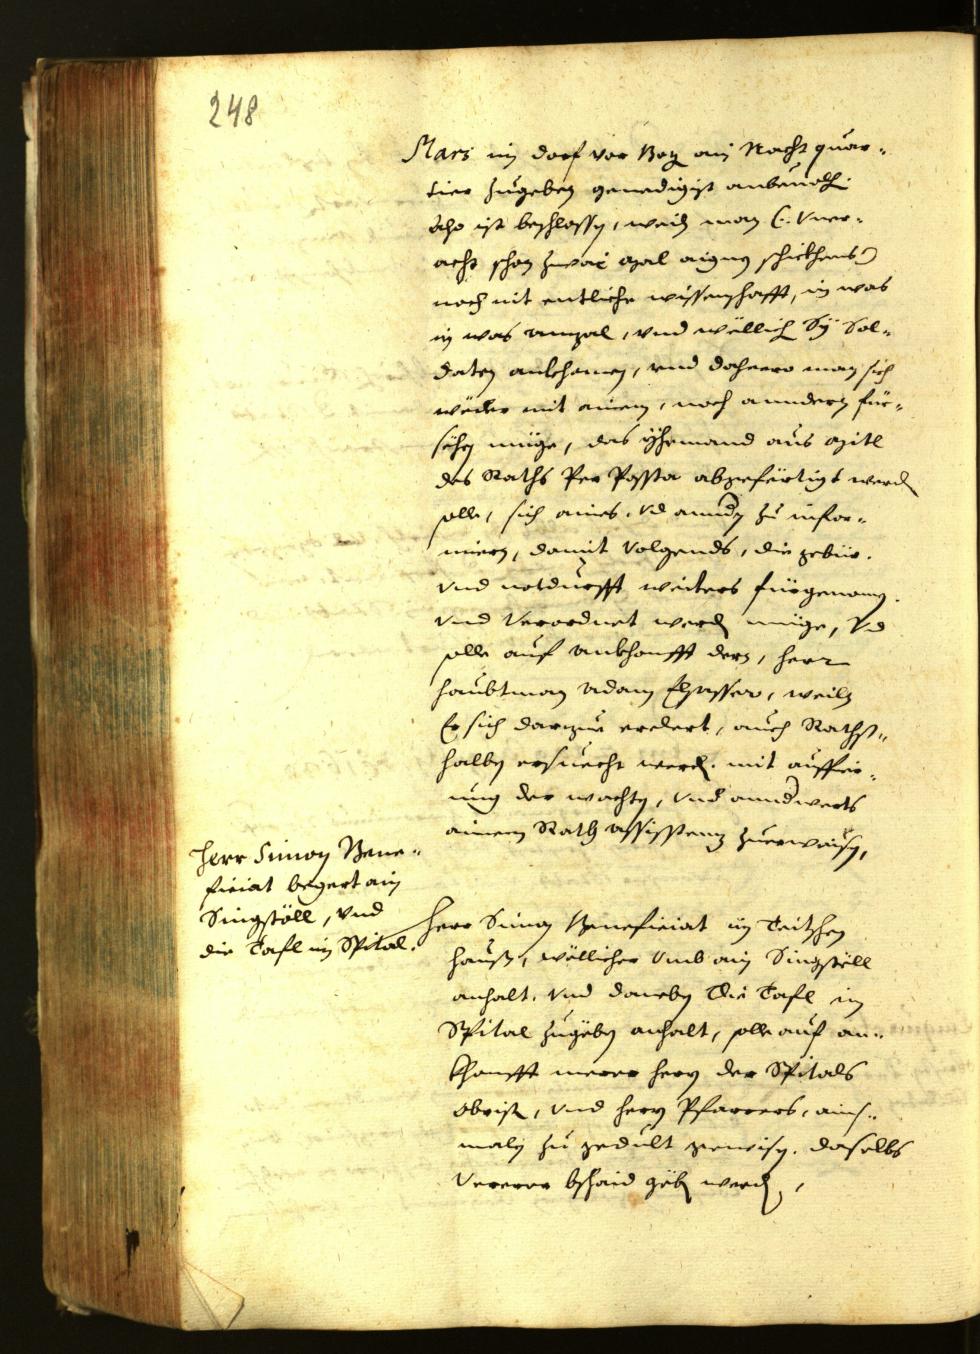 248
Marz in dorf vor Boz ain Nacht quar¬
tier zugeben genedigist anbeuolh.
Also ist beschlossen, weiln man (: Vner¬
acht schon zwai mal aignes schickhens:)
noch nit entliche wissenschafft, in was
in was anzal, vnd wöllich Sÿ Sol¬
daten ankhomen, vnd dahero man sich
weder mit ainem, noch anndern für¬
sehen müge, das yhemand aus mitl
des Raths Per Posta abgefertigt werden
solle, sich aines vnd anndern zu infor¬
miern, damit volgends, die gebür.
vnd notdurfft weiters fürgenomen.
vnd verordnet werden müge, vnd
solle auf ankhonfft dern, herr
haubtman Adam Elsasser, weiln
Er sich darzue erclert, auch Raths¬
halben ersuecht werden. mit auffier¬
ung der wachten, vnd anndwerts
ainem Rath assistenz zuerweisen,
herr Simon Bene¬
ficiat begert ain
Singstöll, vnd
die Tafl im Spital.
Herr Simon Beneficiat im Teitschen
hauß, wöllicher vmb ain Singstöll
anhalt, vnd daneben die Tafl im
Spital zugeben anhalt, solle auf an¬
khonfft merer herrn der Spitals
obrist, vnd herrn Pfarrers, ains¬
maln zu gedult gewisen. daselbs
vererer bschaid geben werden,